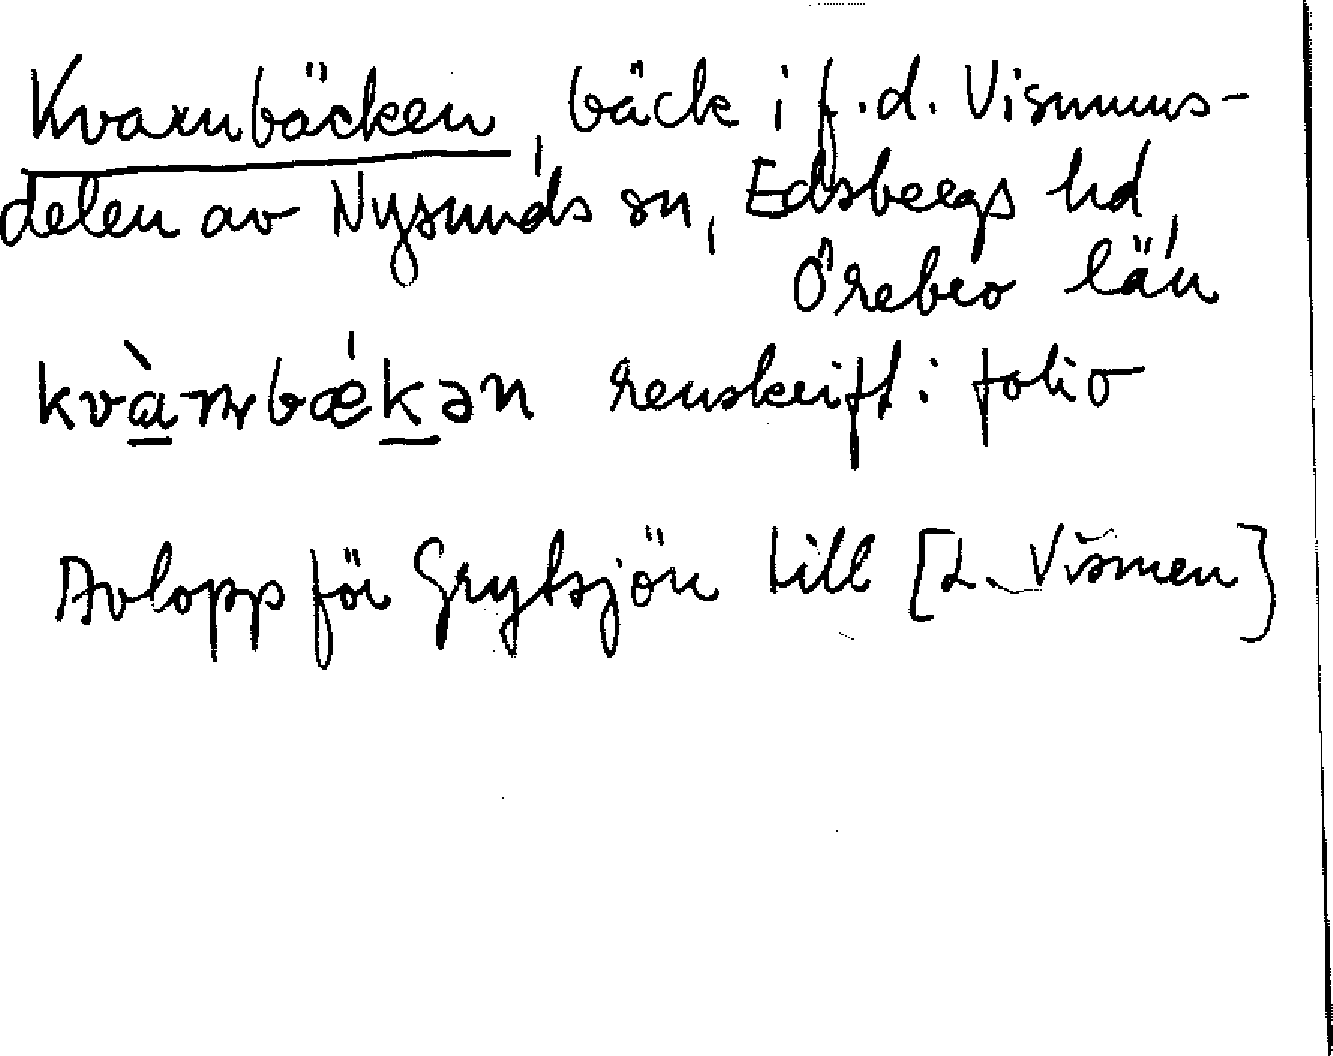 Kvarnbäcken, bäck i f.d. Vismens-
delen av Nysunds sn, Edsbergs hd,
Örebro län
kvà̱rnbǽḵən renskrift: folio
Avlopp för Grytsjön till [L. Vismen]